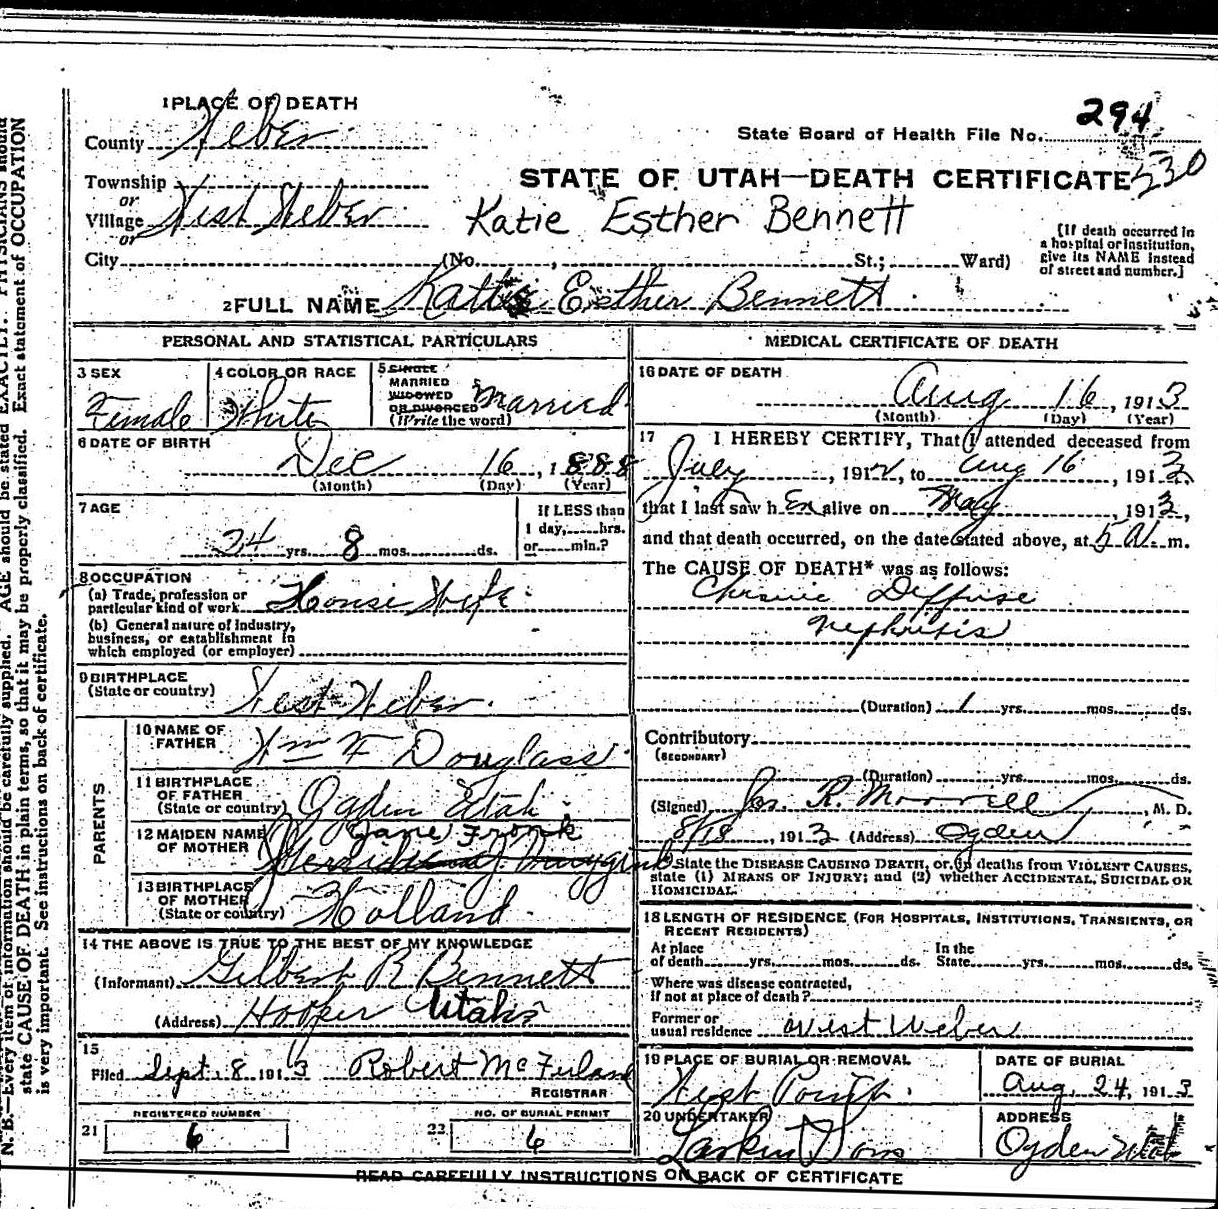 1 PLACE OF DEATH
County Weber
State Board of Health File No. 294
530
Township
or
Village West Weber
or
City (No. , St.; Ward)
STATE OF UTAH—DEATH CERTIFICATE
Katie Esther Bennett
[If death occurred in
a hospital or institution,
give its NAME instead
of street and number.]
2 FULL NAME Katie Esther Bennett
PERSONAL AND STATISTICAL PARTICULARS
3 SEX
Female
4 COLOR OR RACE
White
5 SINGLE
MARRIED
WIDOWED
OR DIVORCED
(Write the word)
Married
6 DATE OF BIRTH
Dec 16, 1888
(Month) (Day) (Year)
7 AGE
24 yrs. 8 mos. ds.
If LESS than
1 day, hrs.
or min.?
8 OCCUPATION
(a) Trade, profession or
particular kind of work House Wife
(b) General nature of industry,
business, or establishment in
which employed (or employer)
9 BIRTHPLACE
(State or country) West Weber
PARENTS
10 NAME OF
FATHER Wm F Douglass
11 BIRTHPLACE
OF FATHER
(State or country) Ogden Utah
12 MAIDEN NAME
OF MOTHER Jane Fronk
13 BIRTHPLACE
OF MOTHER
(State or country) Holland
14 THE ABOVE IS TRUE TO THE BEST OF MY KNOWLEDGE
(Informant) Gilbert R Bennett
(Address) Hooper Utah
15
Filed Sept. 8 1913 Robert McFarland
REGISTRAR
REGISTERED NUMBER
21 6
NO. OF BURIAL PERMIT
22 6
MEDICAL CERTIFICATE OF DEATH
16 DATE OF DEATH
Aug 16, 1913
(Month) (Day) (Year)
17 I HEREBY CERTIFY, That I attended deceased from
July, 1912, to Aug 16, 1913,
that I last saw h er alive on May, 1913,
and that death occurred, on the date stated above, at 5 A. m.
The CAUSE OF DEATH* was as follows:
Chronic Diffuse
Nephritis
(Duration) 1 yrs. mos. ds.
Contributory
(SECONDARY)
(Duration) yrs. mos. ds.
(Signed) Jos. R. Morrell, M. D.
8/18, 1913 (Address) Ogden
*State the DISEASE CAUSING DEATH, or, in deaths from VIOLENT CAUSES,
state (1) MEANS OF INJURY; and (2) whether ACCIDENTAL, SUICIDAL OR
HOMICIDAL.
18 LENGTH OF RESIDENCE (FOR HOSPITALS, INSTITUTIONS, TRANSIENTS, OR
RECENT RESIDENTS)
At place In the
of death yrs. mos. ds. State yrs. mos. ds.
Where was disease contracted,
if not at place of death?
Former or
usual residence West Weber
19 PLACE OF BURIAL OR REMOVAL
West Point
DATE OF BURIAL
Aug. 24, 1913
20 UNDERTAKER
Larkin & Sons
ADDRESS
Ogden Utah
READ CAREFULLY INSTRUCTIONS ON BACK OF CERTIFICATE
N. B.—Every item of information should be carefully supplied. AGE should be stated EXACTLY. PHYSICIANS should
state CAUSE OF DEATH in plain terms, so that it may be properly classified. Exact statement of OCCUPATION
is very important. See instructions on back of certificate.